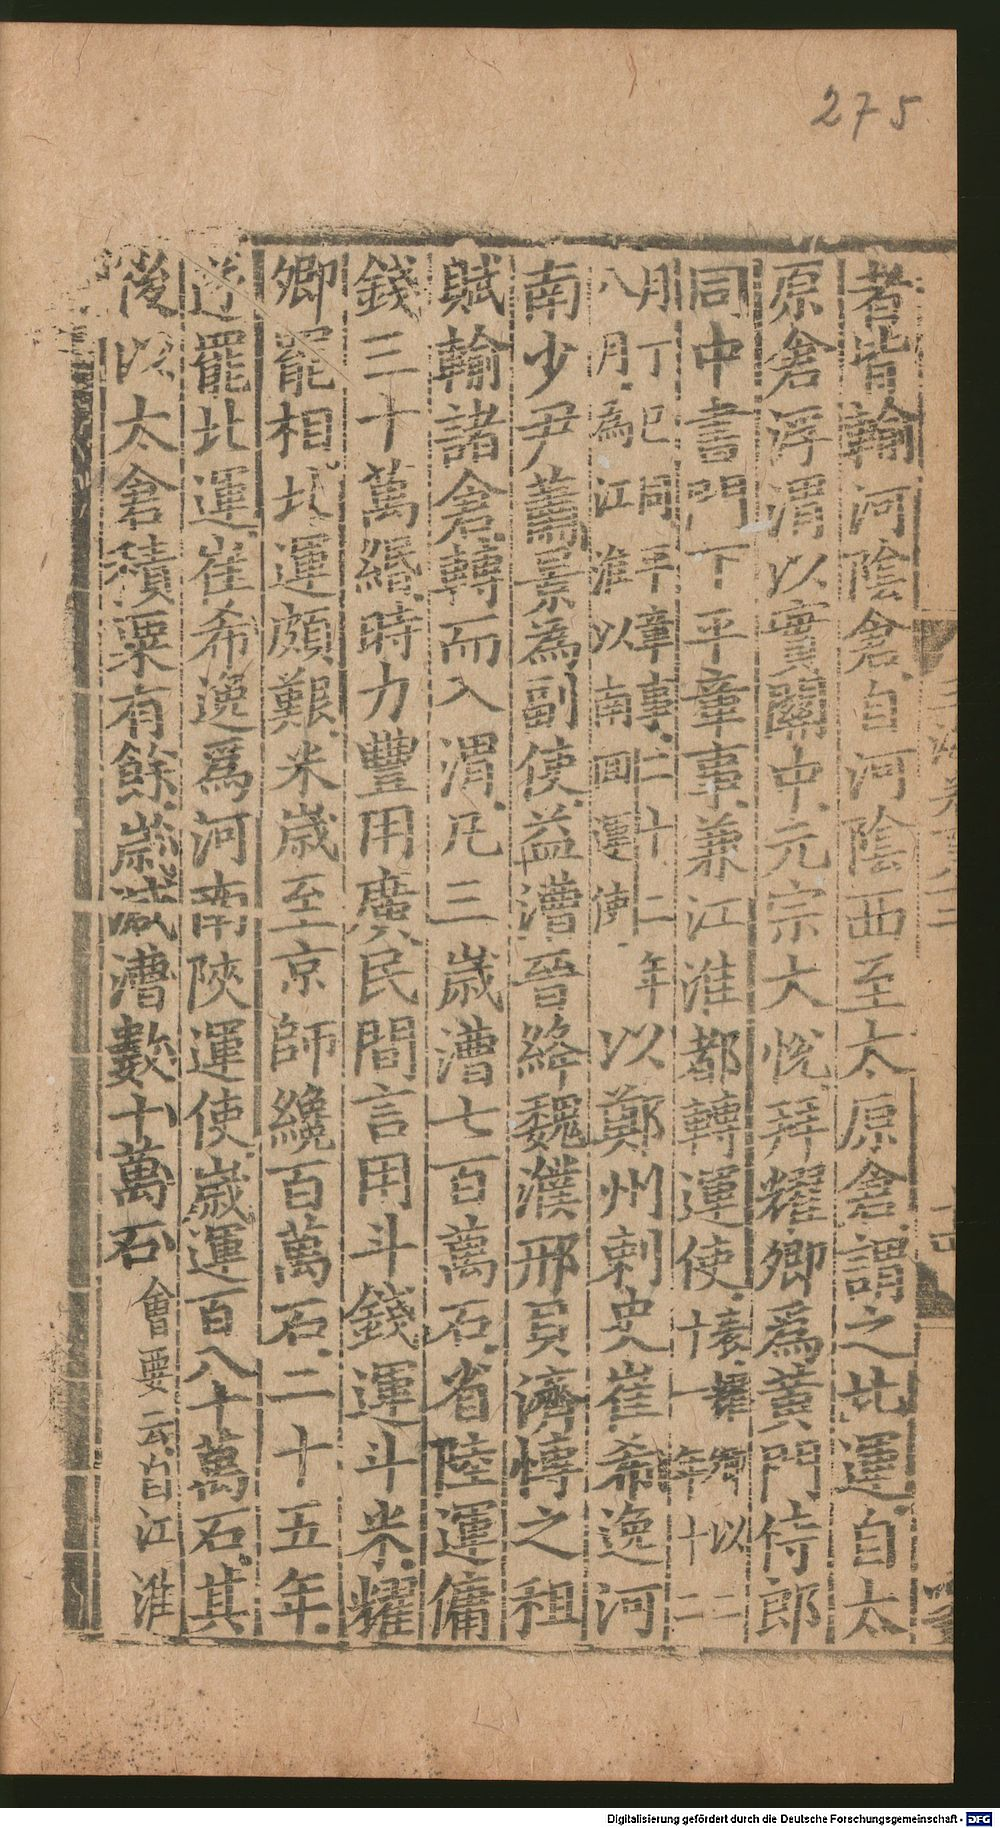 275
者皆輸河陰倉自河陰西至太原倉謂之北運自太
原倉浮渭以實關中元宗大悅拜耀卿爲黃門侍郎
同中書門下平章事兼江淮都轉運使表耀卿以二十一年十二
月丁巳同平章事二十二年八月為江淮以南回運使以鄭州刺史崔希逸河
南少尹蕭景為副使益漕晉絳魏濮邢貝濟博之租
賦輸諸倉轉而入渭凡三歲漕七百萬石省陸運傭
錢三十萬緡時力豐用廣民間言用斗錢運斗米耀
卿罷相北運頗艱米歲至京師纔百萬石二十五年
遂罷北運崔希逸爲河南陝運使歲運百八十萬石其
後以太倉積粟有餘歲減漕數十萬石會要云自江淮
Digitalisierung gefördert durch die Deutsche Forschungsgemeinschaft - DFG